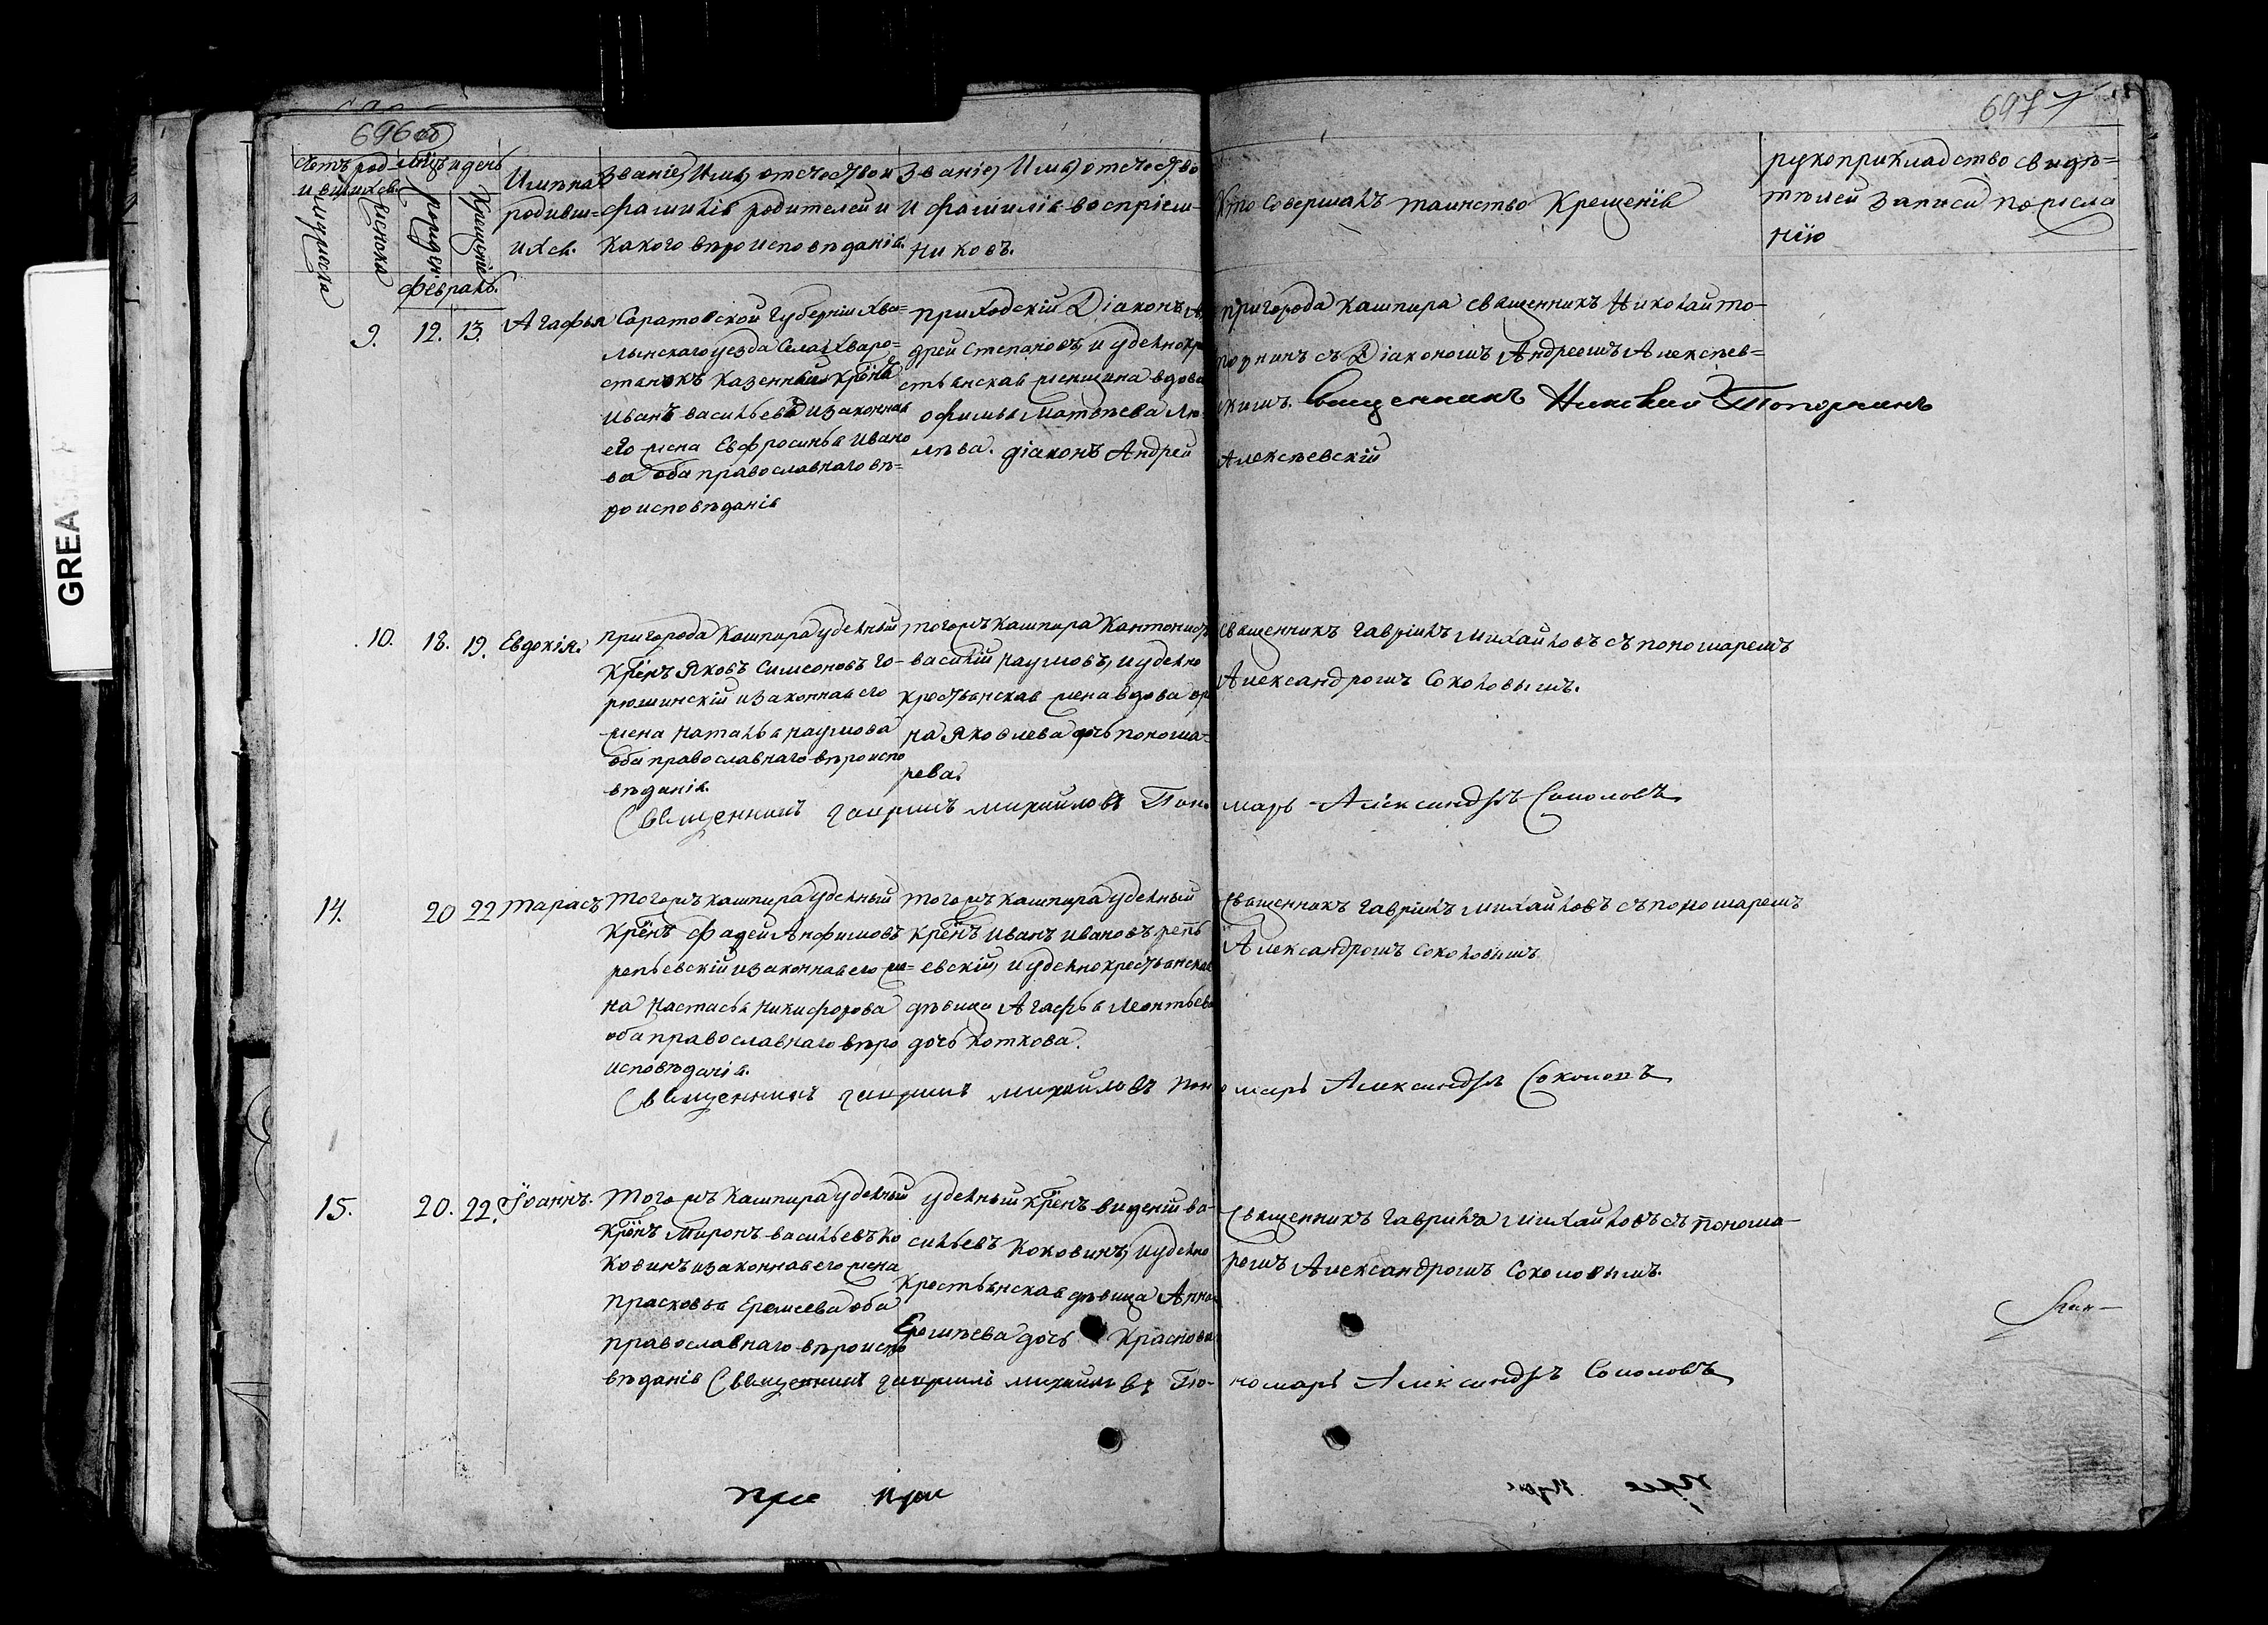 696 об
697
Счетъ родившихся
мѣц. и день
Имена родивш-ихся.
Званіе, Имя, отчество и фамилія родителей и какого вѣроисповѣданія.
Званіе, Имя, отчество и фамилія воспріем-никовъ.
Кто совершалъ таинство Крещенія
рукоприкладство свидѣ=
телей записи по жела
нію
мужеска
женска
рожден.
Крещенія
Февраль.
9. 12. 13. Агафья
Саратовской Губерніи Хва=
лынскаго уезда Села Хваро=
стянокъ казенный крёнъ
Иванъ васильевъ и законная
его жена Евфросинья Ивано
ва оба православнаго вѣ=
роисповѣданія
приходскій Діаконъ Ан
дрей Степановъ, и удельнокре
стьянская женщина вдова
офимья Матвѣева
діаконъ Андрей
пригорода Кашпира священникъ Николай То-
порнинъ съ Діакономъ Андреемъ Алексѣев=
скимъ. Священникъ Николай Топорнинъ
Алексѣевскій
10. 18. 19. Евдокія.
пригорода Кашпира удельный
крёнъ Яковъ Симеоновъ го-
рюшинскій и законная его
жена Наталья Наумова
оба православнаго вѣроиспо
вѣданія.
тогожъ Кашпира Кантонистъ
василій Наумовъ, и удельно
крестьянская жена вдова
на Яковлева дочь понома-
рева.
священникъ Гавріилъ Михайловъ съ пономаремъ
Александромъ Соколовымъ.
Священникъ гавріилъ михайловъ Поно марь Александръ Соколовъ
14. 20 22 Тарасъ
Тогожъ Кашпира удельный
крёнъ Фадей Анфимовъ
репьевскій и законная его же=
на Настасья Никифорова
оба православнаго вѣро
исповѣданія.
тогожъ Кашпира удельный
крёнъ Иванъ Ивановъ репь
евскій, и удельнокрестьянская
дѣвица Агафья Леонтьева
дочь Коткова.
священникъ Гавріилъ Михайловъ съ пономаремъ
Александромъ Соколовымъ
Священникъ гавріилъ михайловъ поно марь Александръ Соколовъ
15. 20. 22. Іоаннъ.
Тогожъ Кашпира удельный
крёнъ Миронъ васильевъ Ко
ковинъ и законная его жена
прасковья Еремеева оба
православнаго вѣроиспо
вѣданія
удельный крёнъ ва-
сильевъ Коковинъ, и удельно
крестьянская дѣвица Анна
Еремѣева дочь Краснова
Священникъ Гавріилъ Михайловъ съ понома-
ремъ Александромъ Соколовымъ.
Священникъ гавріилъ михайловъ По- номарь Александръ Соколовъ
GREA